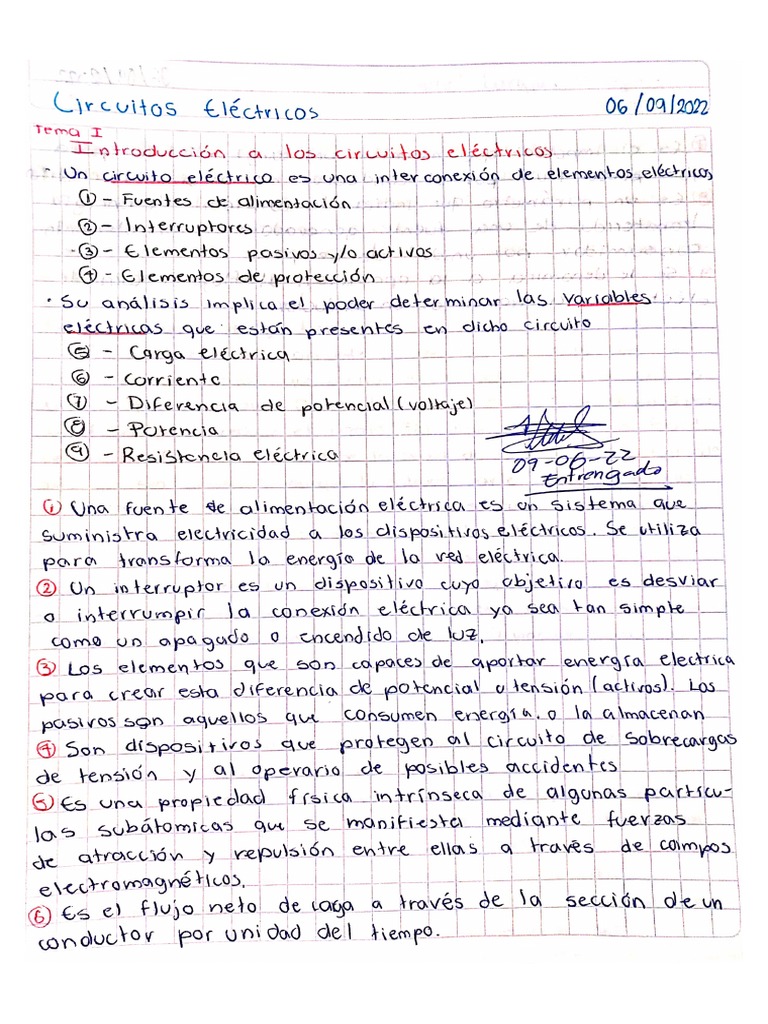 Circuitos Eléctricos 06/09/2022
Tema I
Introducción a los circuitos eléctricos
· Un circuito eléctrico es una interconexión de elementos eléctricos
① - Fuentes de alimentación
② - Interruptores
③ - Elementos pasivos y/o activos
④ - Elementos de protección
· Su análisis implica el poder determinar las variables
eléctricas que están presentes en dicho circuito
⑤ - Carga eléctrica
⑥ - Corriente
⑦ - Diferencia de potencial (voltaje)
⑧ - Potencia
⑨ - Resistencia eléctrica
09-06-22
Entrengado
① Una fuente de alimentación eléctrica es un sistema que
suministra electricidad a los dispositivos eléctricos. Se utiliza
para transforma la energía de la red eléctrica.
② Un interruptor es un dispositivo cuyo objetivo es desviar
o interrumpir la conexión eléctrica ya sea tan simple
como un apagado o encendido de luz.
③ Los elementos que son capaces de aportar energía electrica
para crear esta diferencia de potencial o tensión (activos). Los
pasivos son aquellos que consumen energía. o la almacenan
④ Son dispositivos que protegen al circuito de sobrecargas
de tensión y al operario de posibles accidentes
⑤ Es una propiedad física intrínseca de algunas partícu-
las subátomicas que se manifiesta mediante fuerzas
de atracción y repulsión entre ellas a través de campos
electromagnéticos.
⑥ Es el flujo neto de carga a través de la sección de un
conductor por unidad del tiempo.